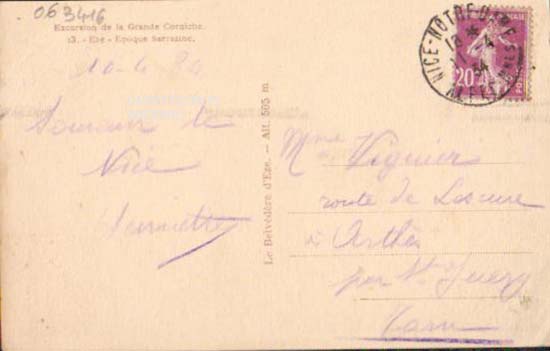 063416
Excursion de la Grande Corniche.
13. - Eze - Epoque Sarrazine.
10-4-34
Souvenir de
Nice
Le Belvédère d'Eze. - Alt. 505 m
NICE-NOTRE-DAME
18
4
34
ALPES
20c
Mme Viguier
route de Lescure
à Arthès
par St Juéry
Tarn